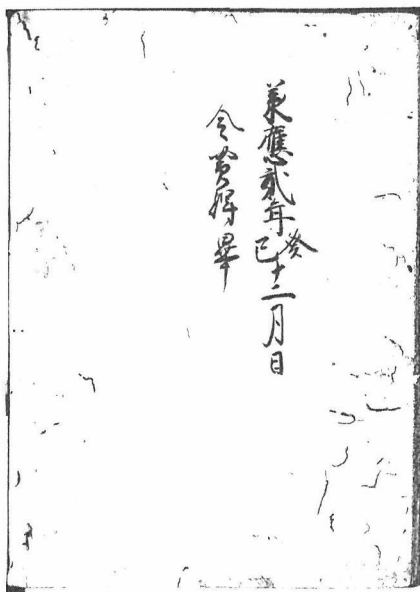 承應貳年癸巳十二月日
令買得畢